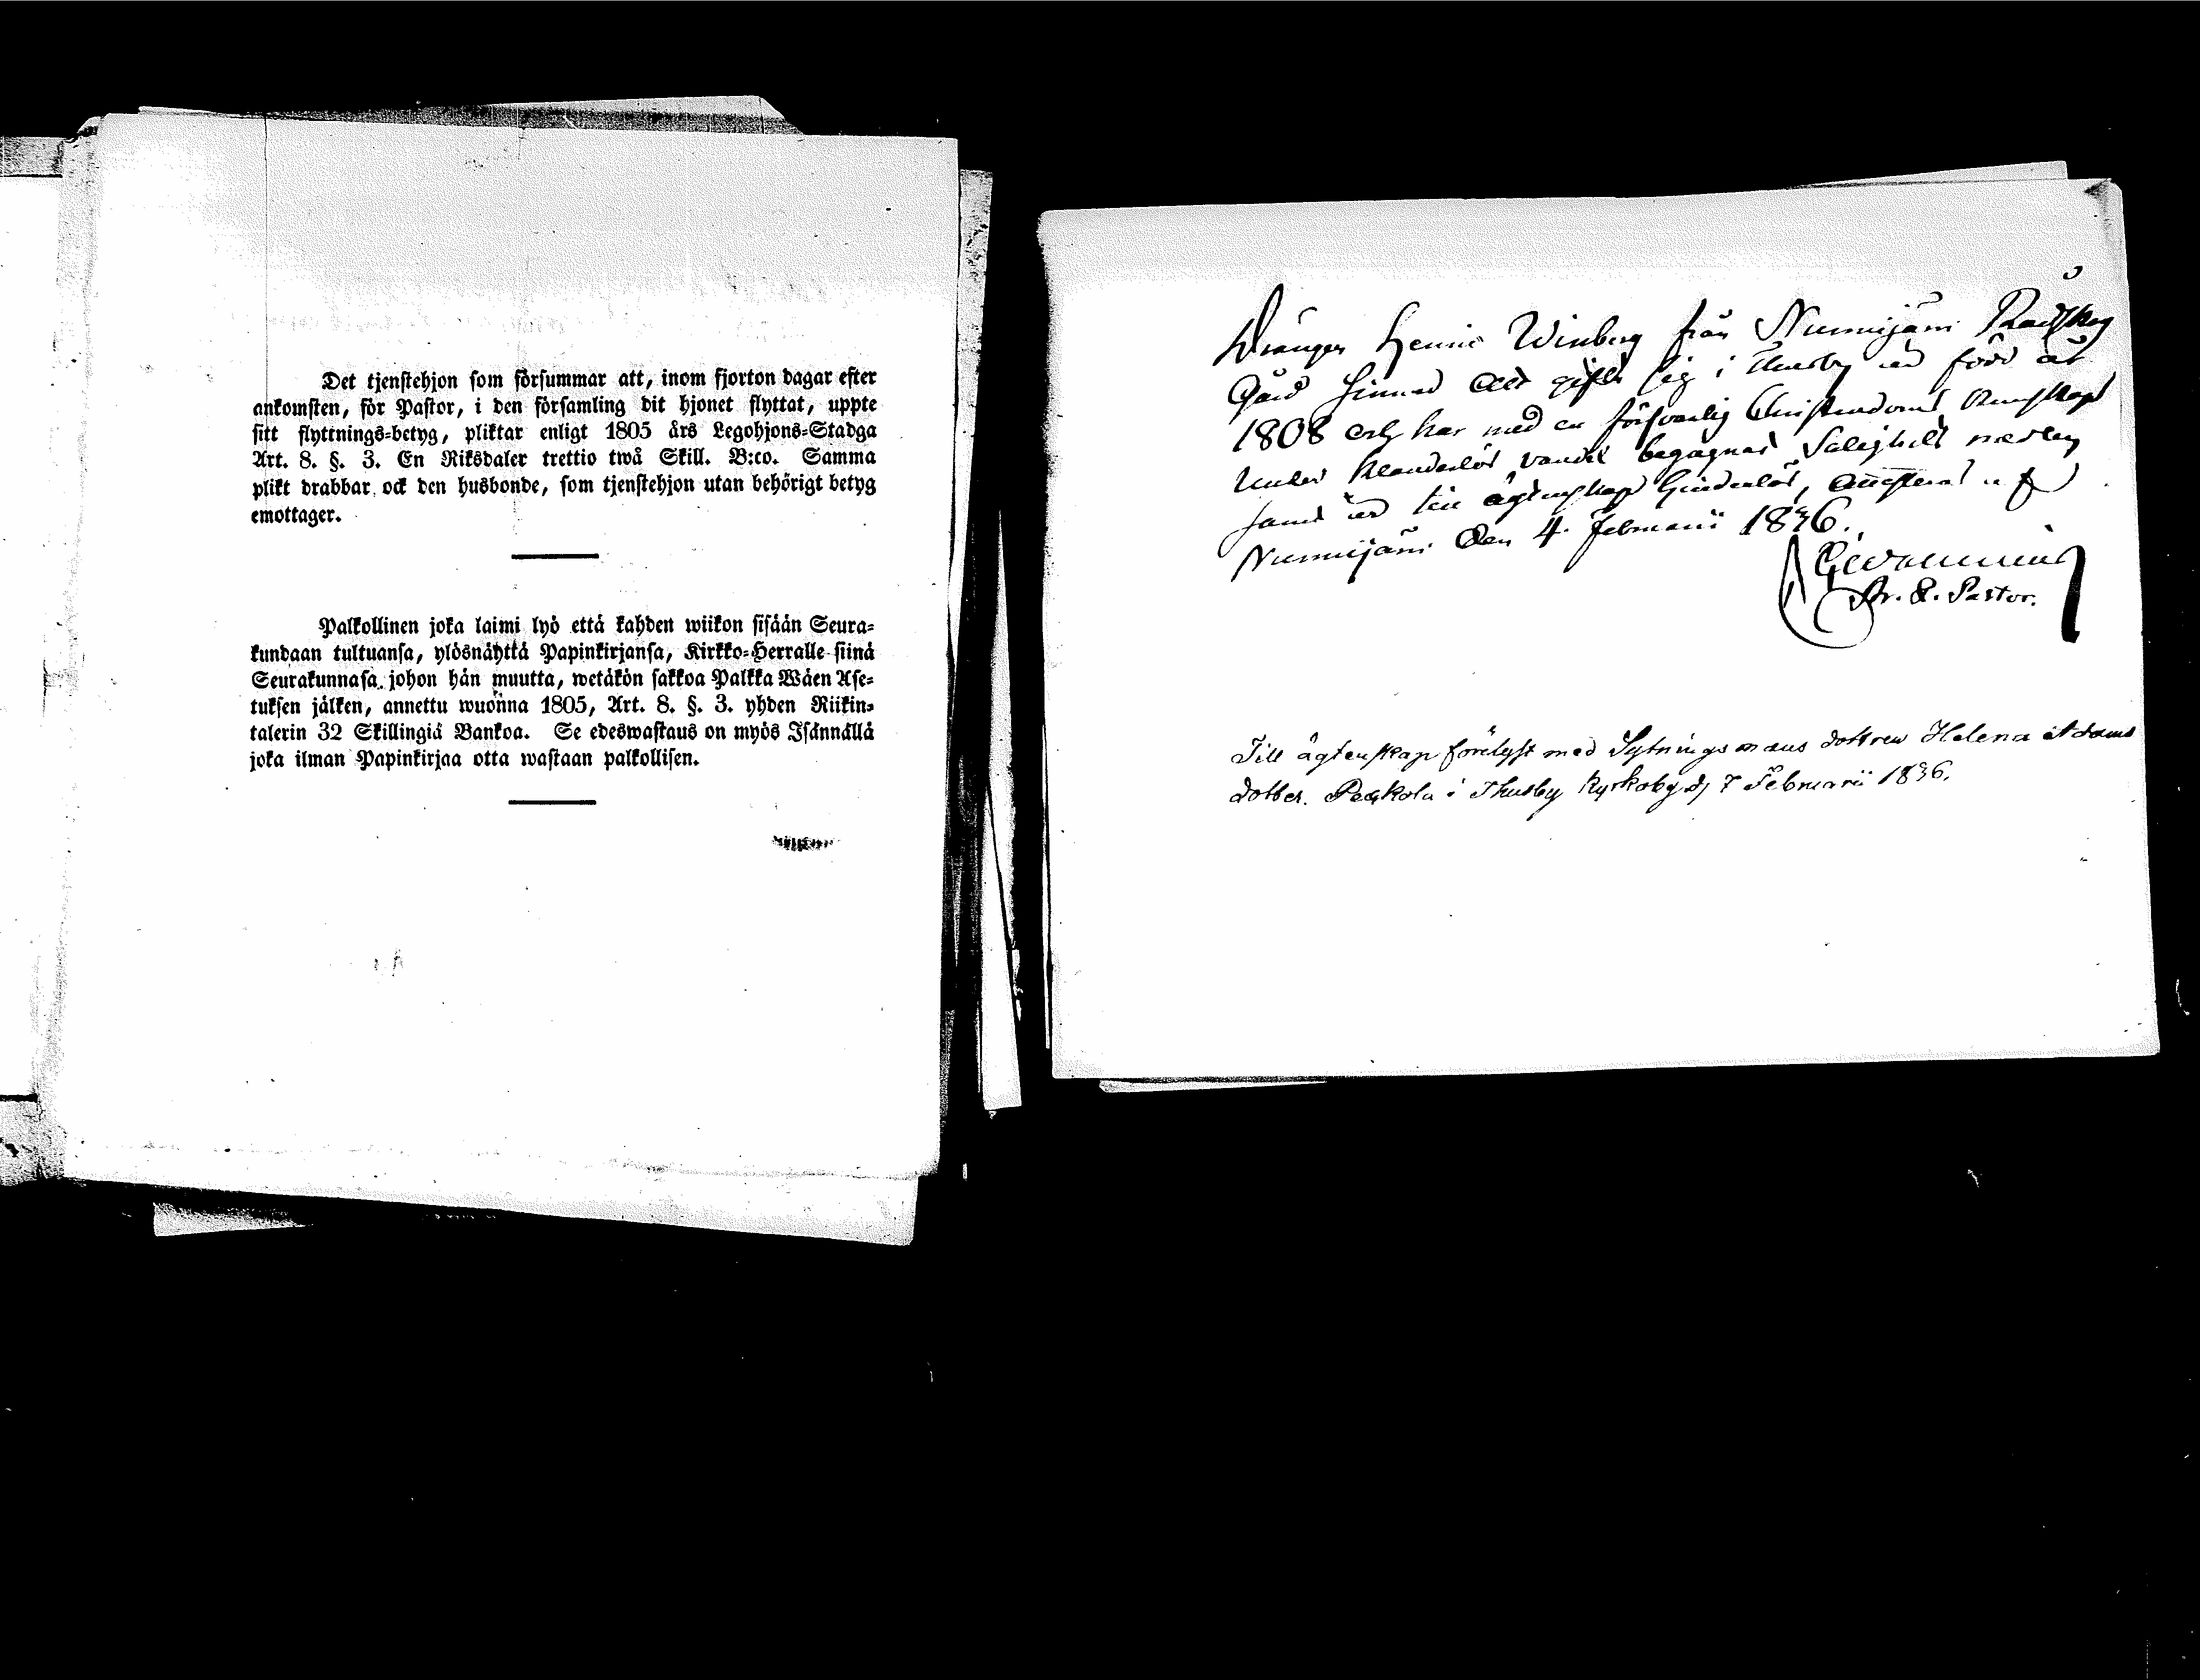 Det tjenstehjon som försummar att, inom fjorton dagar efter
ankomsten, för Pastor, i den församling dit hjonet flyttat, uppte
sitt flyttnings-betyg, pliktar enligt 1805 års Legohjons-Stadga
Art. 8. §. 3. En Riksdaler trettio twå Skill. B:co. Samma
plikt drabbar ock den husbonde, som tjenstehjon utan behörigt betyg
emottager.
Palkollinen joka laimi lyö että kahden wiikon sisään Seura-
kundaan tultuansa, ylösnäyttä Papinkirjansa, Kirkko-Herralle siinä
Seurakunnasa johon hän muutta, wetäkön sakkoa Palkka Wäen Ase-
tuksen jälken, annettu wuonna 1805, Art. 8. §. 3. yhden Riikin-
talerin 32 Skillingiä Bankoa. Se edeswastaus on myös Isännällä
joka ilman Papinkirjaa otta wastaan palkollisen.
Drängen Henric Winberg från Nurmijärvi
Gård sinnad att gifta sig i Thusby är född år
1808 och har med en försvarlig Christendoms kunskap
under klanderlös vandel begagnat Salighets medlen
samt är till ägtenskap hinderlös, attesterar
Nurmijärvi den 4 Februarii 1836.
Pastor.
Till ägtenskap förelyst med Sytningsmans dottren Helena Adams
dotter Peckola i Thusby Kyrkoby d. 7 Februarii 1836.